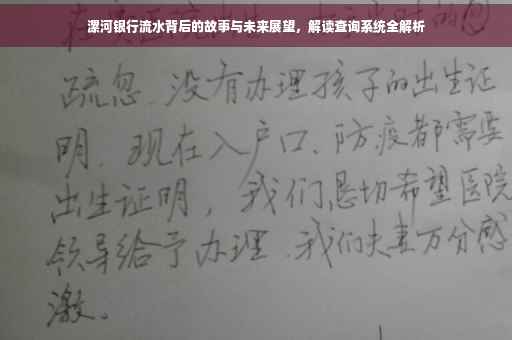 漯河银行流水背后的故事与未来展望，解读查询系统全解析
疏忽.没有办理孩子的出生证
明.现在入户口、防疫都需要
出生证明，我们恳切希望医院
领导给予办理.我们夫妻万分感
激。